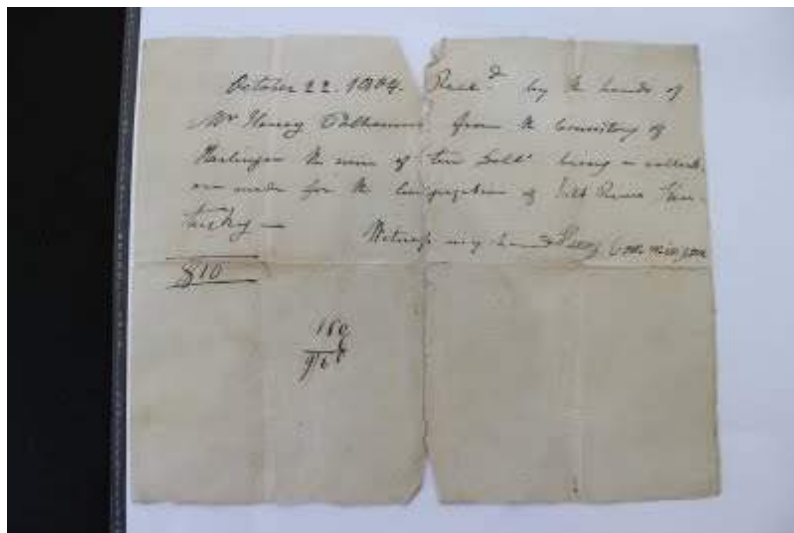 October 22. 1804. Recd by the hands of
Mr Henry from the Consistory of
Harlingen the sum of ten Dolls being a collecti-
on made for the Congregation of Salt River Ken-
tucky —
Witness my hand
$10